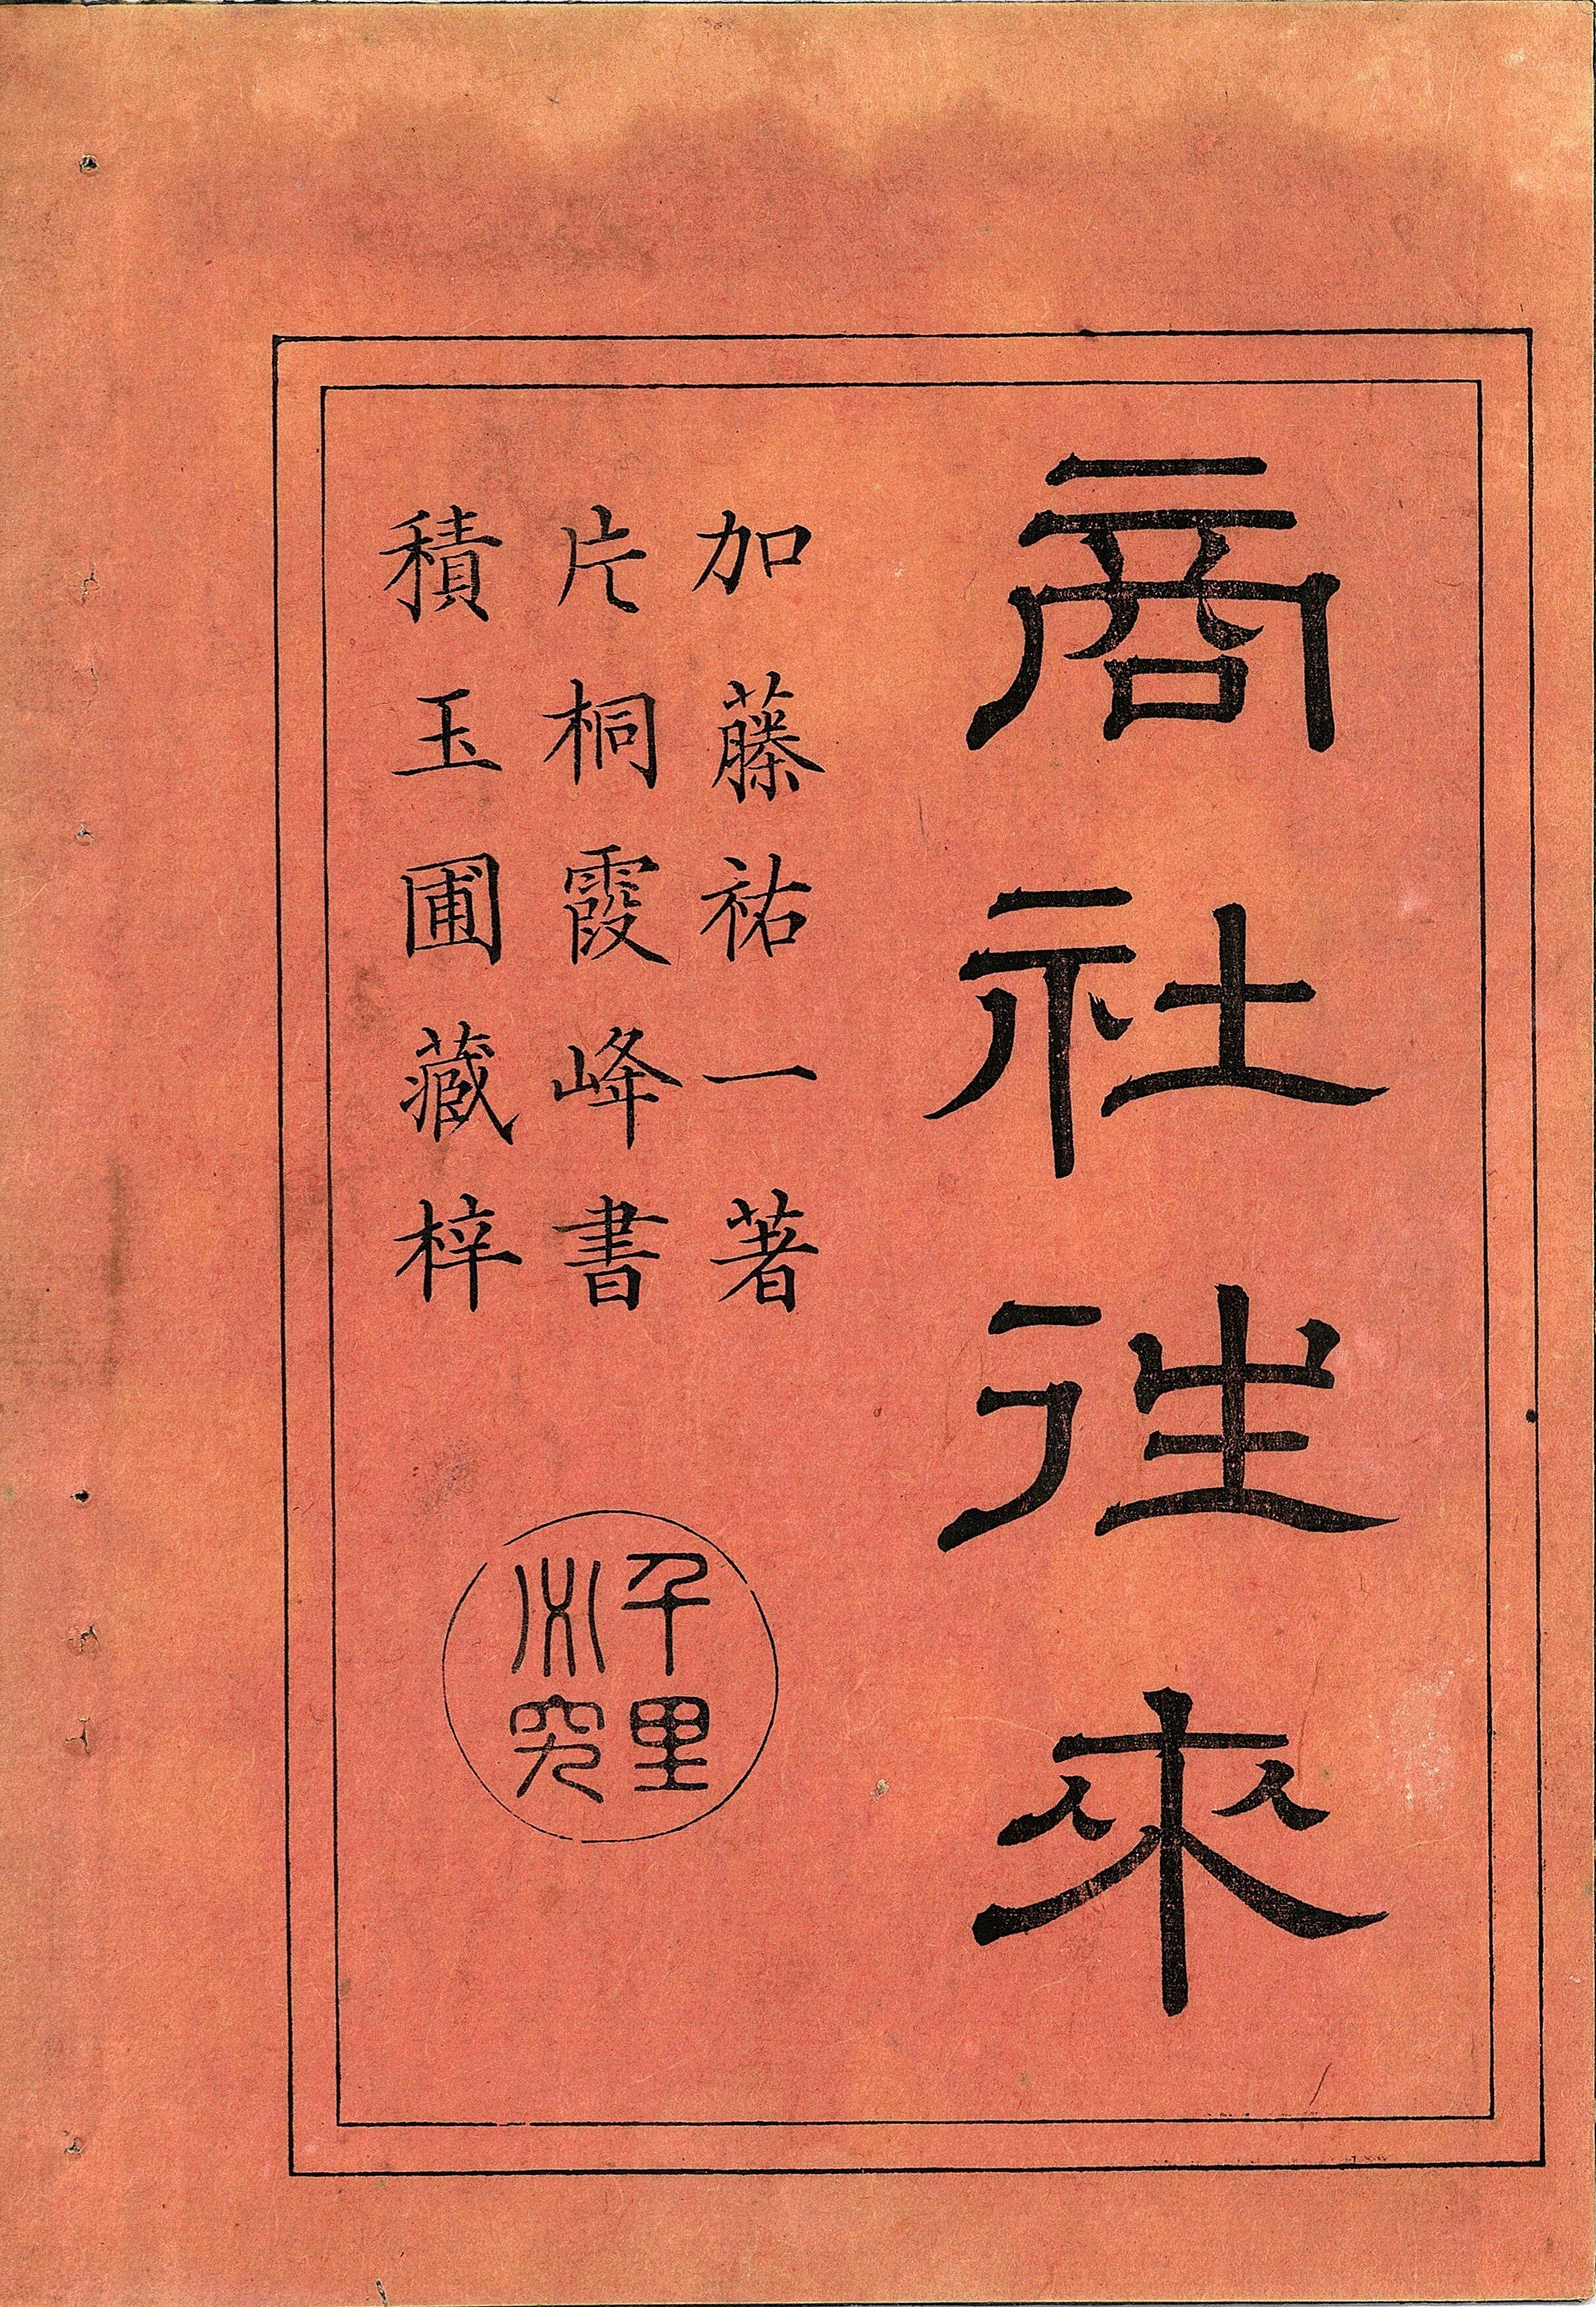 商社往來
加藤祐一著
片桐霞峰書
積玉圃藏梓
千里
必究